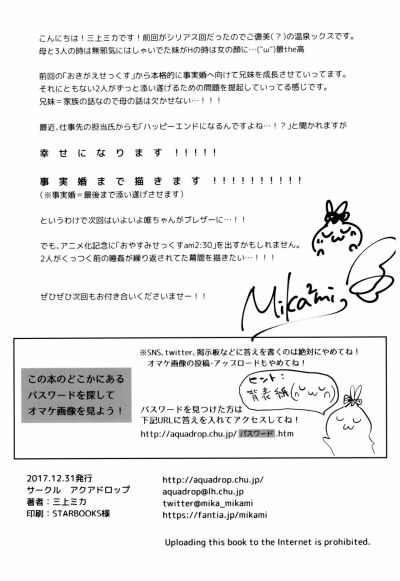 こんにちは！三上ミカです！前回がシリアス回だったのでご褒美(？)の温泉ックスです。
母と3人の時は無邪気にはしゃいでた妹がHの時は女の顔に…(˘ω˘)最the高
前回の「おきがえせっくす」から本格的に事実婚へ向けて兄妹を成長させていってます。
それにともない2人がずっと添い遂げるための問題を提起していってる感じです。
兄妹＝家族の話なので母の話は欠かせない…！！！
最近、仕事先の担当氏からも「ハッピーエンドになるんですよね…！？」と聞かれますが
幸せになります！！！！！
事実婚まで描きます！！！！！！！！！！
(※事実婚＝最後まで添い遂げさせます)
というわけで次回はいよいよ唯ちゃんがブレザーに…！！
でも、アニメ化記念に「おやすみせっくすam2:30」を出すかもしれません。
2人がくっつく前の睡姦が繰り返されてた幕間を描きたい…！！！
ぜひぜひ次回もお付き合いくださいませー！！
Mika2mi
※SNS、twitter、掲示板などに答えを書くのは絶対にやめてね！
オマケ画像の投稿・アップロードもやめてね！
この本のどこかにある
パスワードを探して
オマケ画像を見よう！
ヒント：
背表紙
パスワードを見つけた方は
下記URLに答えを入れてアクセスしてね！
http://aquadrop.chu.jp/パスワード.htm
2017.12.31発行
サークル　アクアドロップ
著者：三上ミカ
印刷：STARBOOKS様
http://aquadrop.chu.jp/
aquadrop@lh.chu.jp
twitter@mika_mikami
https://fantia.jp/mikami
Uploading this book to the Internet is prohibited.